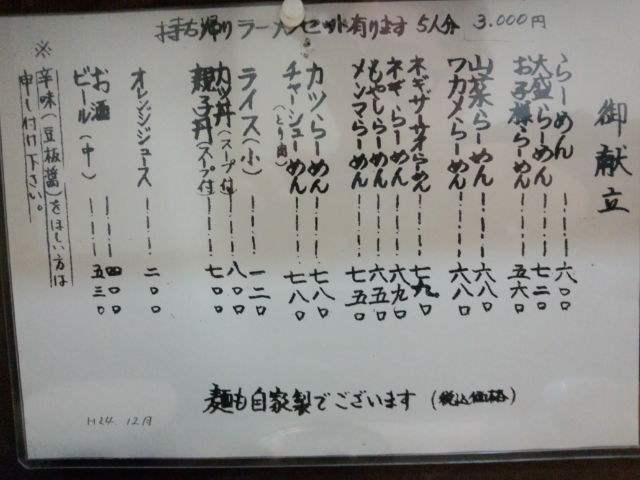 持ち帰りラーメンセット有ります 5人分 3.000円
御献立
らーめん 六〇〇
大盛らーめん 七二〇
お子様らーめん 五六〇
山菜らーめん 六八〇
ワカメらーめん 六八〇
ネギチャーシューらーめん 七九〇
ネギらーめん 六九〇
もやしらーめん 六五〇
メンマらーめん 七五〇
カツらーめん 七八〇
チャーシューめん(とり肉) 七八〇
ライス(小) 一二〇
カツ丼(スープ付) 八〇〇
親子丼(スープ付) 七〇〇
オレンジジュース 二〇〇
お酒 四〇〇
ビール(中) 五三〇
※辛味(豆板醤)をほしい方は
申し付け下さい。
麺も自家製でございます(税込価格)
H24.12月